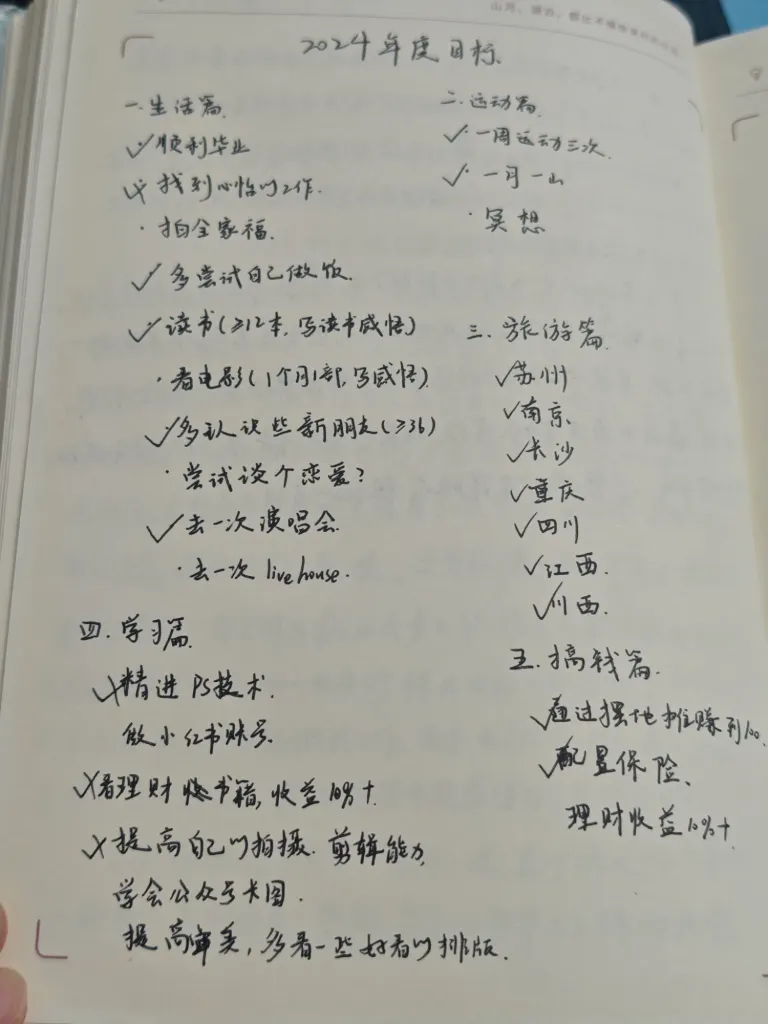 2024年度目标
一.生活篇
✓顺利毕业
✓找到心怡的工作.
·拍全家福.
✓多尝试自己做饭.
✓读书(≥12本,写读书感悟)
·看电影(1个月1部,写感悟)
✓多认识些新朋友(≥36)
·尝试谈个恋爱?
✓去一次演唱会
·去一次livehouse.
二.运动篇
✓一周运动三次.
✓一月一山
·冥想
三.旅游篇
✓苏州
✓南京
✓长沙
✓重庆
✓四川
✓江西.
✓川西.
四.学习篇
✓精进PS技术.
做小红书账号
看理财书籍,收益10%+
提高自己的拍摄.剪辑能力
学会公众号长图.
提高审美,多看一些好看的排版.
五.搞钱篇.
✓通过摆地摊赚到100.
✓配置保险、
理财收益10%+